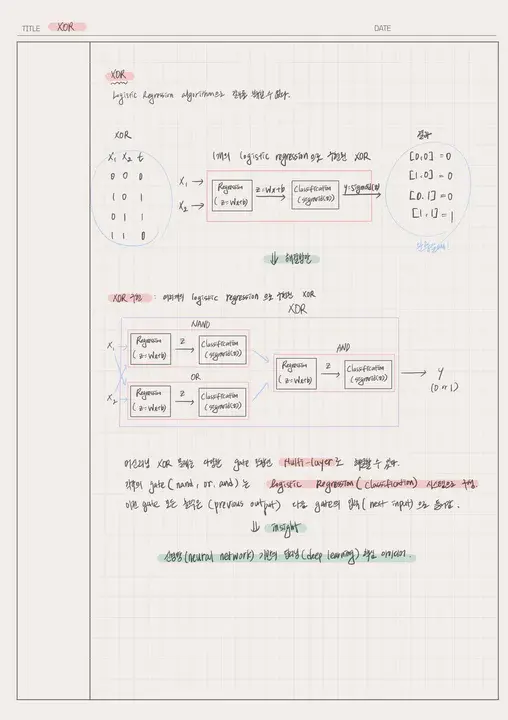 TITLE XOR DATE
XOR
Logistic Regression algorithm으로 XOR를 할 수 없다.
XOR
X₁ X₂ t
0 0 0
1 0 1
0 1 1
1 1 0
1개의 logistic regression으로 구현한 XOR
X₁
X₂
Regression
(z=Wx+b)
z=Wx+b
Classification
(sigmoid(z))
y=sigmoid(z)
결과
[0,0] = 0
[1,0] = 0
[0,1] = 0
[1,1] = 1
⇓ 해결방안
XOR 구현 : 여러개의 logistic regression 으로 구현한 XOR
XOR
NAND
X₁
Regression
(z=Wx+b)
z
Classification
(sigmoid(z))
AND
Regression
(z=Wx+b)
z
Classification
(sigmoid(z))
y
(0 or 1)
OR
X₂
Regression
(z=Wx+b)
z
Classification
(sigmoid(z))
XOR 문제는 다양한 gate 조합인 Multi-Layer로 해결할 수 있다.
각각의 gate(nand, or, and)는 Logistic Regression(classification) 시스템으로 구성.
이전 gate 모든 출력은 (previous output) 다음 gate의 입력(next input)으로 들어감.
⇓ insight
신경망(neural network) 기반의 딥러닝(deep learning) 핵심 아이디어.